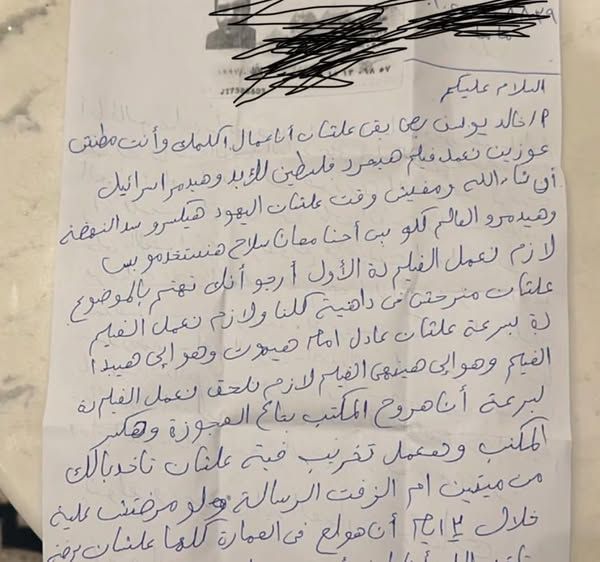 السلام عليكم
م/ خالد يوسف بص بقى علشان أنا عمال أكلمك وأنت مطنش
عوزين نعمل فيلم هيحرر فلسطين للأبد وهيدمر اسرائيل
أن شاء الله ومفيش وقت علشان اليهود هيكسرو سد النهضة
وهيدمرو العالم كلو بس أحنا معانا سلاح هنستخدمو بس
لازم نعمل الفيلم دة الأول أرجو أنك تهتم بالموضوع
علشان منرحش فى داهية كلنا ولازم نعمل الفيلم
دة بسرعة علشان عادل امام هيموت وهو إلى هيبدا
الفيلم وهو إلى هينهى الفيلم لازم نلحق نعمل الفيلم دة
بسرعة أنا هروح المكتب بتاع العجوزة وهكسر
المكتب وهعمل تخريب فية علشان تاخد بالك
من ميتين ام الزفت الرسالة ولو مردتش علية
خلال ٣ ايام أنا هولع فى العمارة كلها علشان